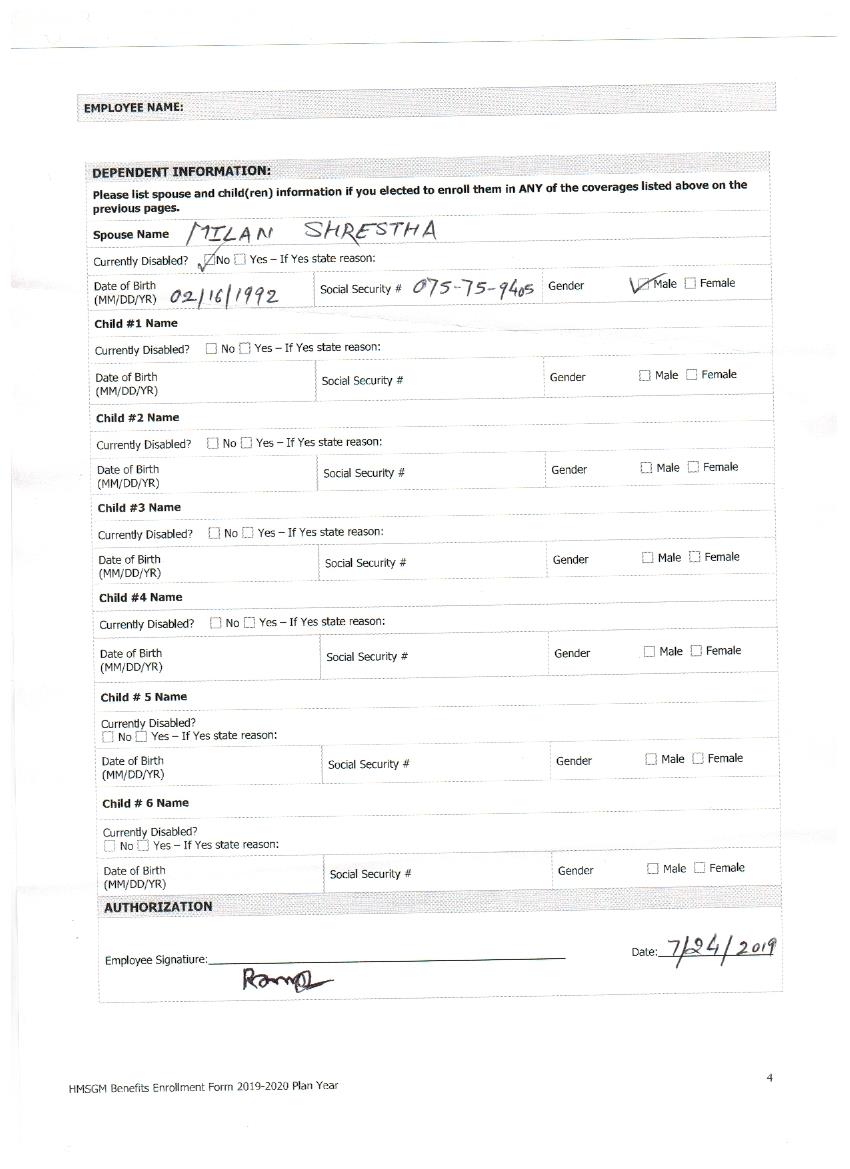 EMPLOYEE NAME:
DEPENDENT INFORMATION:
Please list spouse and child(ren) information if you elected to enroll them in ANY of the coverages listed above on the
previous pages.
Spouse Name MILAN SHRESTHA
Currently Disabled? No Yes – If Yes state reason:
Date of Birth Social Security # 075-75-9405 Gender Male Female
(MM/DD/YR) 02/16/1992
Child #1 Name
Currently Disabled? No Yes – If Yes state reason:
Date of Birth Social Security # Gender Male Female
(MM/DD/YR)
Child #2 Name
Currently Disabled? No Yes – If Yes state reason:
Date of Birth Social Security # Gender Male Female
(MM/DD/YR)
Child #3 Name
Currently Disabled? No Yes – If Yes state reason:
Date of Birth Social Security # Gender Male Female
(MM/DD/YR)
Child #4 Name
Currently Disabled? No Yes – If Yes state reason:
Date of Birth Social Security # Gender Male Female
(MM/DD/YR)
Child # 5 Name
Currently Disabled?
No Yes – If Yes state reason:
Date of Birth Social Security # Gender Male Female
(MM/DD/YR)
Child # 6 Name
Currently Disabled?
No Yes – If Yes state reason:
Date of Birth Social Security # Gender Male Female
(MM/DD/YR)
AUTHORIZATION
Employee Signature: Date: 7/24/2019
HMSGM Benefits Enrollment Form 2019-2020 Plan Year 4